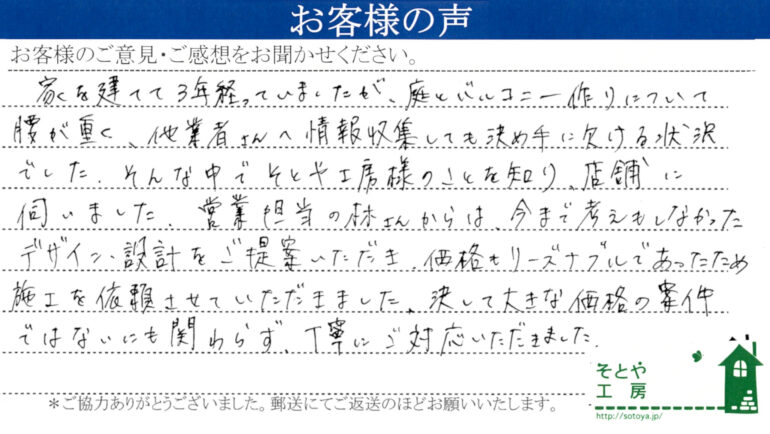 お客様の声
お客様のご意見・ご感想をお聞かせください。
家を建てて3年経っていましたが、庭とバルコニー作りについて
腰が重く、他業者さんへ情報収集しても決め手に欠ける状況
でした。そんな中でそとや工房様のことを知り、店舗に
伺いました。営業担当の林さんからは、今まで考えもしなかった
デザイン、設計をご提案いただき、価格もリーズナブルであったため
施工を依頼させていただきました。決して大きな価格の案件
ではないにも関わらず、丁寧にご対応いただきました。
そとや
工房
http://sotoya.jp/
＊ご協力ありがとうございました。郵送にてご返送のほどお願いいたします。